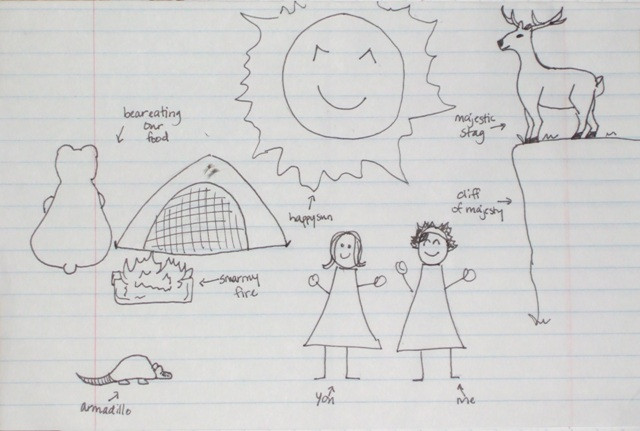 bear eating
our
food
majestic
stag
cliff
of majesty
happy sun
smarmy
fire
armadillo
you
me